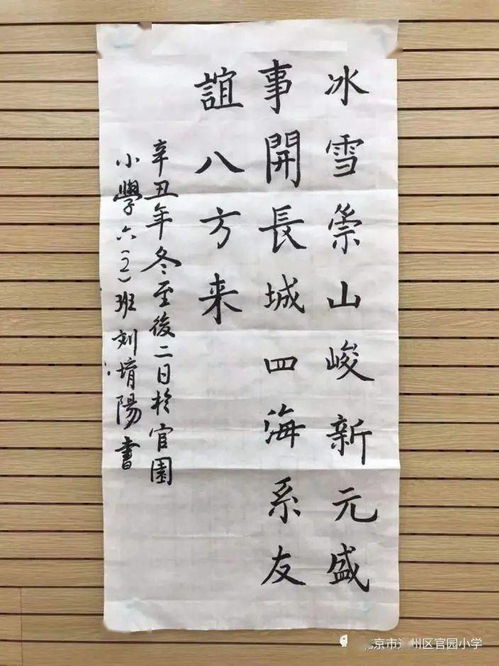 冰雪崇山峻新元盛
事開長城四海系友
誼八方来
辛丑年冬至後二日於官園
小學六(2)班刘堉陽書
京市通州区官园小学